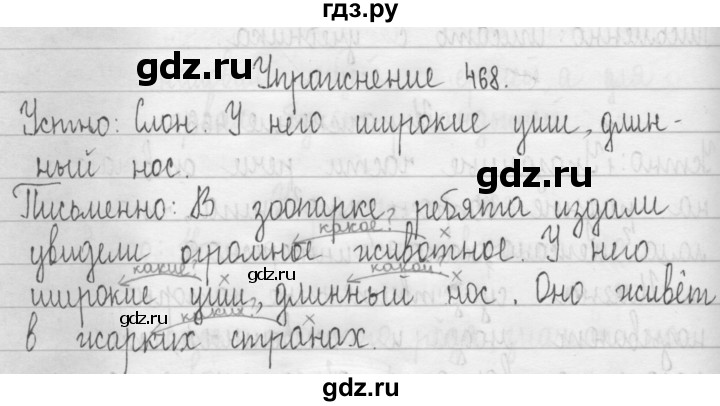 гдз.ру
gdz.ru
Упражнение 468.
Устно: Слон. У него широкие уши, длин-
ный нос.
gdz.ru
Письменно: В зоопарке ребята издали
какое? х
увидели огромное животное. У него
какие? х какой? х
gdz.ru
широкие уши, длинный нос. Оно живёт
gdz.ru
каких? х
в жарких странах.
gdz.ru